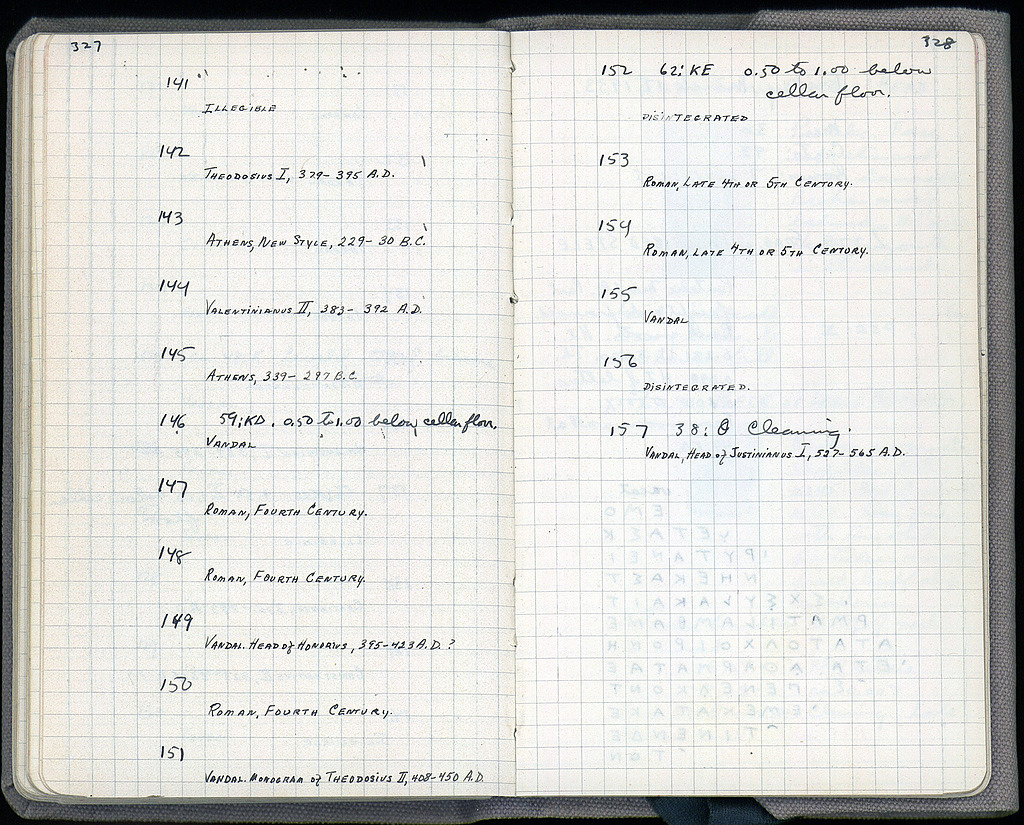 327
141
ILLEGIBLE
142
THEODOSIUS I, 379-395 A.D.
143
ATHENS, NEW STYLE, 229-30 B.C.
144
VALENTINIANUS II, 383- 392 A.D.
145
ATHENS, 339- 297 B.C.
146 59:KD. 0.50 to 1.00 below cellar floor.
VANDAL
147
ROMAN, FOURTH CENTURY.
148
ROMAN, FOURTH CENTURY.
149
VANDAL. HEAD of HONORIUS, 395-423 A.D. ?
150
ROMAN, FOURTH CENTURY.
151
VANDAL. MONOGRAM of THEODOSIUS II, 408-450 A.D.
328
152 62:KE 0.50 to 1.00 below
cellar floor.
DISINTEGRATED
153
ROMAN, LATE 4TH OR 5TH CENTURY.
154
ROMAN, LATE 4TH OR 5TH CENTURY.
155
VANDAL
156
DISINTEGRATED.
157 38:Θ Cleaning.
VANDAL, HEAD of JUSTINIANUS I, 527-565 A.D.